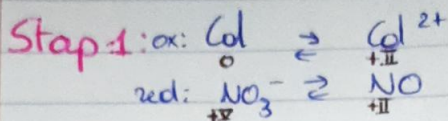 Stap 1: ox: Cd ⇄ Cd²⁺
0 +II
red: NO₃⁻ ⇄ NO
+V +II